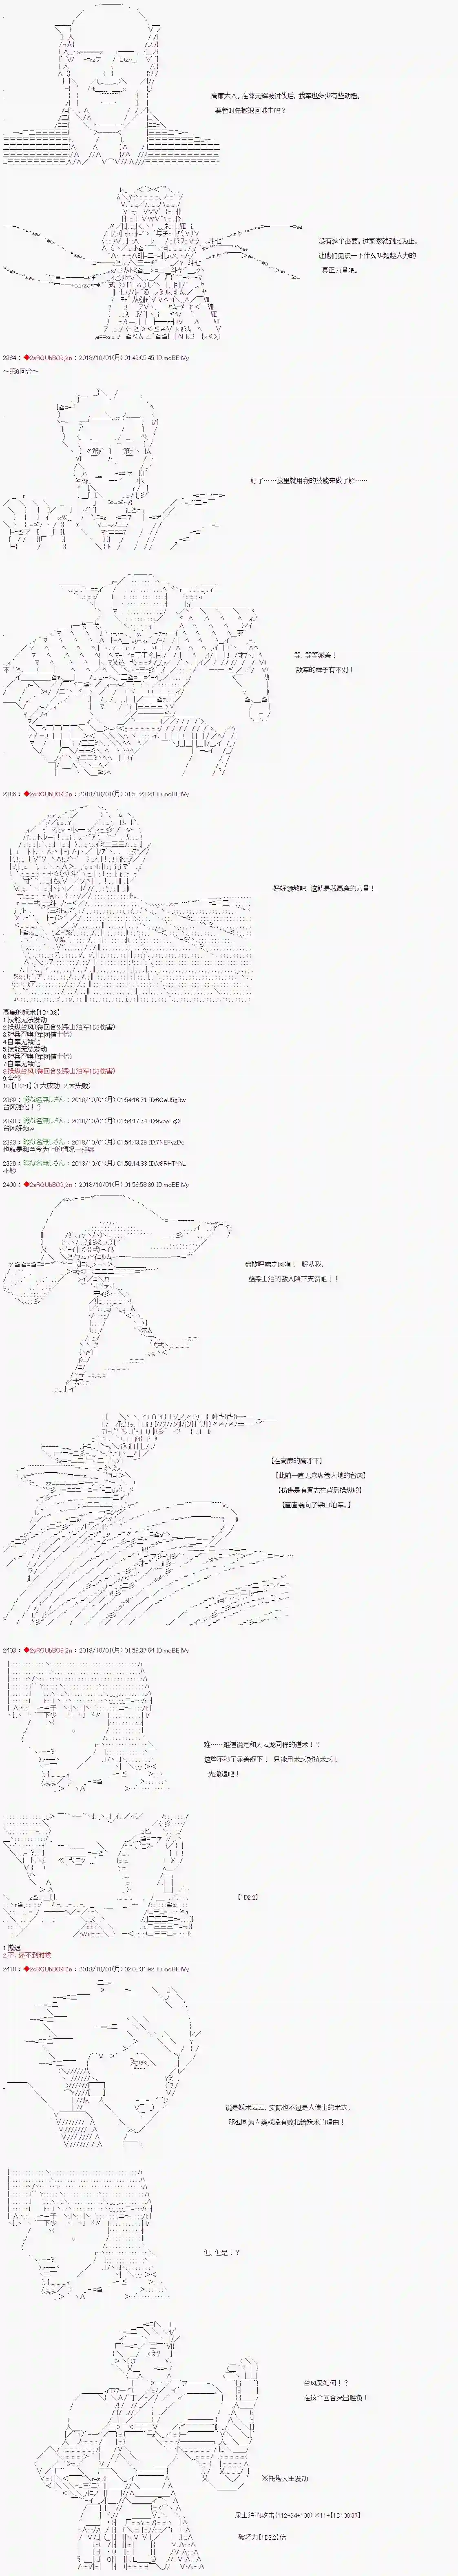 高廉大人。在薛元辉被讨伐后，我军也多少有些动摇。
要暂时先撤退回城中吗？
没有这个必要。过家家就到此为止。
让他们见识一下什么叫超越人力的
真正力量吧。
2384 : ◆2sRGUbBO9j2n : 2018/10/01(月) 01:49:05.45 ID:moBEiIVy
～第6回合～
好了……这里就用我的技能来做个了解……
等，等等晁盖！
敌军的样子有不对！
2386 : ◆2sRGUbBO9j2n : 2018/10/01(月) 01:53:23.28 ID:moBEiIVy
好好领教吧，这就是我高廉的力量！
高廉的妖术【1D10:8】
1.技能无法发动
2.操纵台风（每回合对梁山泊军1D3伤害）
3.神兵召唤（军团值十倍）
4.自军无敌化
5.技能无法发动
6.神兵召唤（军团值十倍）
7.自军无敌化
8.操纵台风（每回合对梁山泊军1D3伤害）
9.全部
10.【1D2:1】（1.大成功 2.大失败）
2389 : 暇な名無しさん : 2018/10/01(月) 01:54:16.71 ID:6OeU5gRw
台风强化！？
2390 : 暇な名無しさん : 2018/10/01(月) 01:54:17.74 ID:9voeLgOI
台风好烦w
2393 : 暇な名無しさん : 2018/10/01(月) 01:54:43.29 ID:7NEFyzDc
也就是和至今为止的情况一样嘛
2399 : 暇な名無しさん : 2018/10/01(月) 01:56:14.88 ID:V8RHTNYz
不妙
2400 : ◆2sRGUbBO9j2n : 2018/10/01(月) 01:56:59.89 ID:moBEiIVy
盘旋呼啸之风啊！ 服从我，
给梁山泊的敌人降下天罚吧！！
【在高廉的高呼下】
【此前一直无序席卷大地的台风】
【仿佛是有意志在背后操纵般】
【直直袭向了梁山泊军。】
2403 : ◆2sRGUbBO9j2n : 2018/10/01(月) 01:59:37.64 ID:moBEiIVy
难……难道说是和入云龙同样的道术！？
这些不秒了晁盖阁下！ 只能用术式对抗术式！
先撤退吧！
【1D2:2】
1.撤退
2.不，还不到时候
2410 : ◆2sRGUbBO9j2n : 2018/10/01(月) 02:03:31.92 ID:moBEiIVy
说是妖术云云，实际也不过是人使出的术式。
那么同为人类就没有败北给妖术的理由！
但，但是！？
台风又如何！？
在这个回合决出胜负！
※托塔天王发动
梁山泊的攻击（112+94+100）×11+【1D100:37】
破坏力【1D3:2】倍